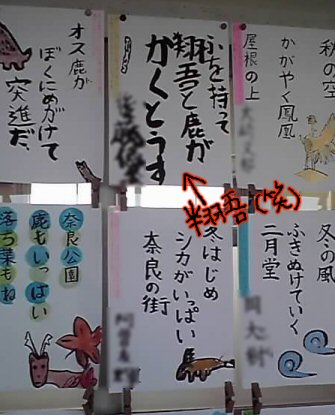 秋の空
かがやく鳳凰
屋根の上
ふを持って
翔吾と鹿が
かくとうす
オス鹿が
ぼくにめがけて
突進だ
翔吾(笑)
冬の風
ふきぬけていく
二月堂
冬はじめ
シカがいっぱい
奈良の街
奈良公園
鹿もいっぱい
落つ葉もね